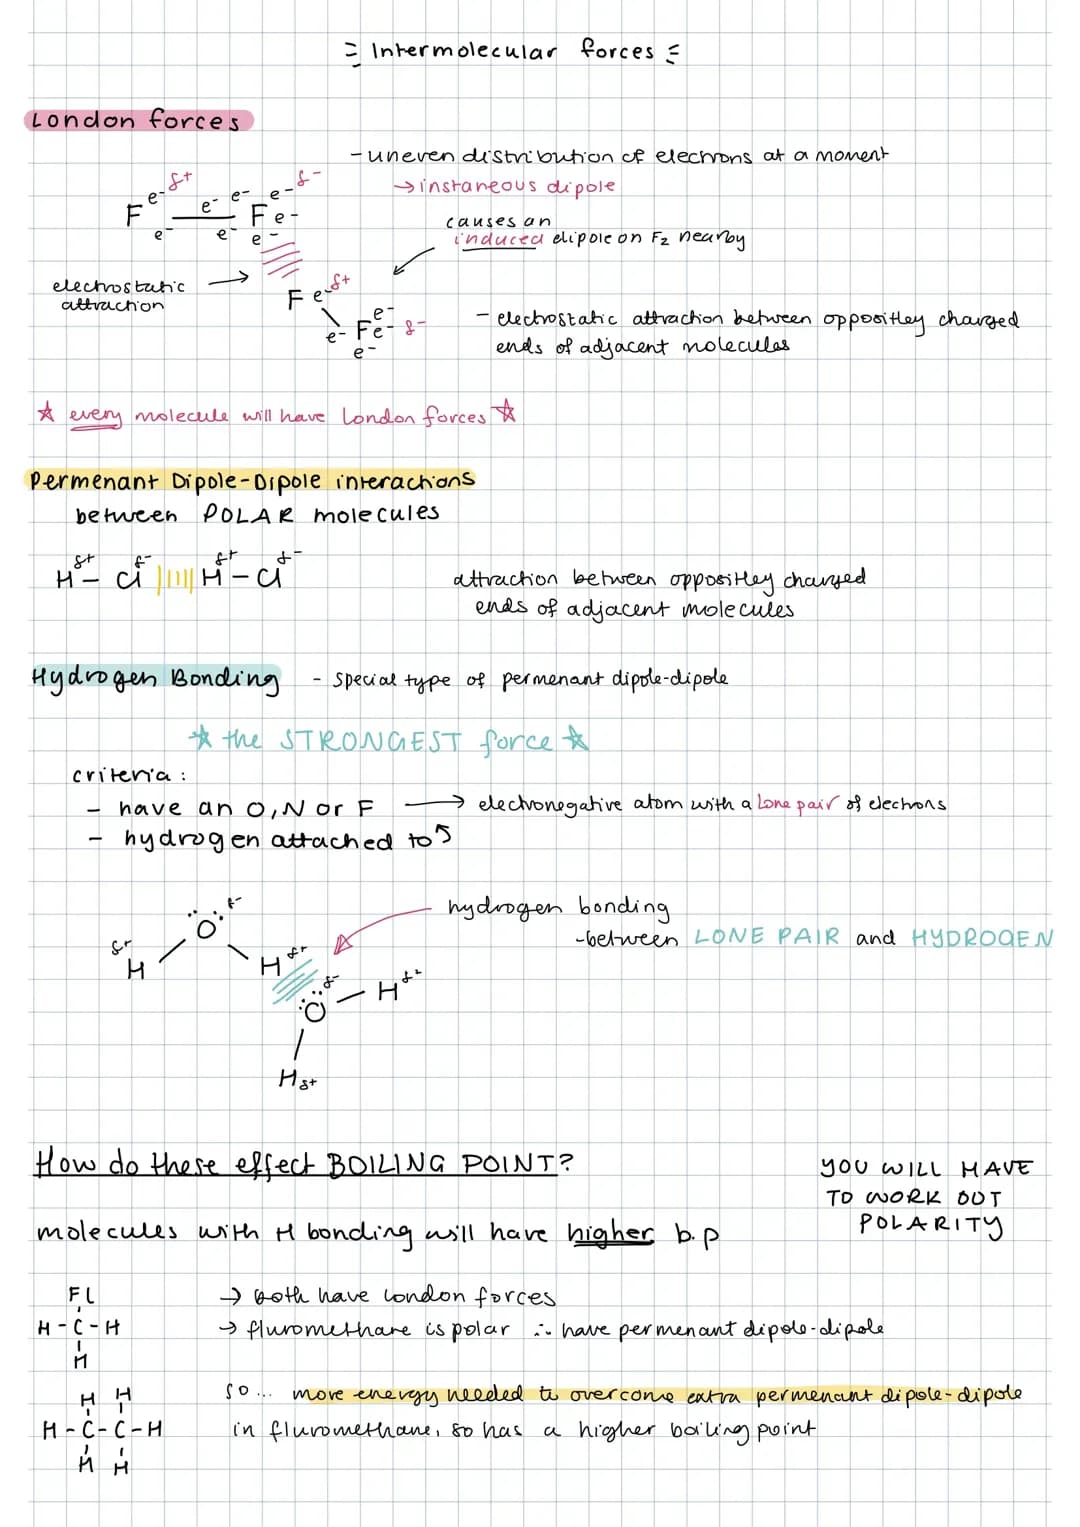 Intermolecular forces
London forces
- uneven distribution of electrons at a moment
→ instaneous dipole
causes an
induced dipole on F2 nearby
F e- δ+ e- e- e- δ-
F e-
e- e- e-
electrostatic
attraction
F e- δ+
e- F e- e- δ-
e-
- electrostatic attraction between oppositley charged
ends of adjacent molecules
☆ every molecule will have London forces ☆
Permenant Dipole-Dipole interactions
between POLAR molecules
δ+ δ- δ+ δ-
H - Cl |||||| H - Cl
attraction between oppositley charged
ends of adjacent molecules
Hydrogen Bonding - special type of permenant dipole-dipole
☆ the STRONGEST force ☆
criteria :
- have an O, N or F → electronegative atom with a lone pair of electrons
- hydrogen attached to ↑
hydrogen bonding
- between LONE PAIR and HYDROGEN
O δ-
δ+ H
H δ+
O δ- - H δ+
H δ+
How do these effect BOILING POINT?
YOU WILL HAVE
TO WORK OUT
POLARITY
molecules with H bonding will have higher b.p
FL
H - C - H
H
→ both have London forces
→ fluromethane is polar ∴ have permenant dipole-dipole
H H
H - C - C - H
H H
so... more energy needed to overcome extra permenant dipole-dipole
in fluromethane, so has a higher boiling point